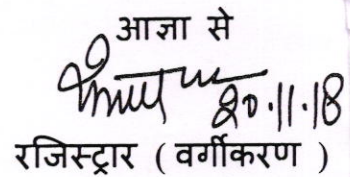 आज्ञा से
20.11.18
रजिस्ट्रार ( वर्गीकरण )